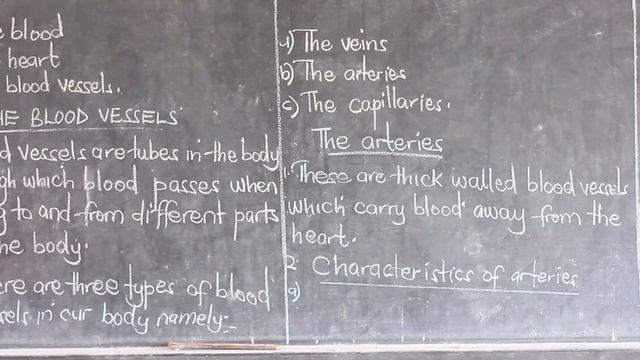 e blood
heart
blood vessels.
HE BLOOD VESSELS
d vessels are tubes in the body
gh which blood passes when
g to and from different parts
he body.
ere are three types of blood
sels in our body namely:-
a) The veins
b) The arteries
c) The capillaries.
The arteries
1. These are thick walled blood vessels
which carry blood away from the
heart.
2. Characteristics of arteries
a)